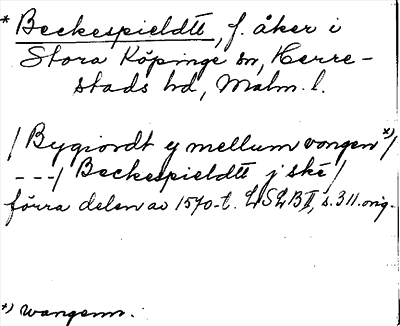 * Beckespieldtt, f. åker i
Stora Köpinge sn, Herre-
stads hd, Malm. l.
/ Bygiordt ej mellum vongen *) /
---/ Beckespieldtt j ské /
förra delen av 1570-t. LSLB II, s. 311. orig.
*) wangenn.